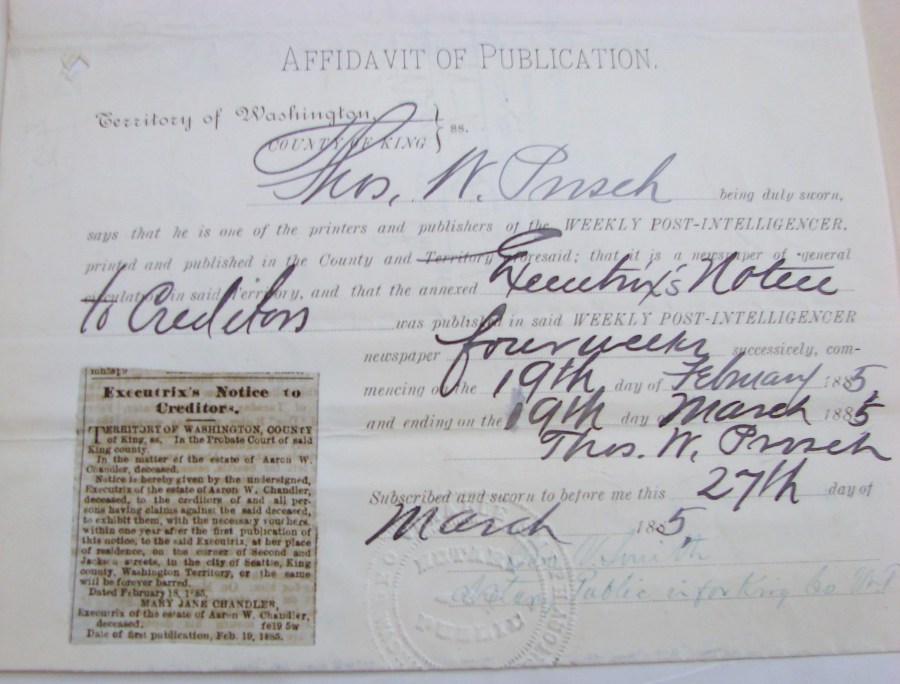 AFFIDAVIT OF PUBLICATION.
Territory of Washington,
COUNTY OF KING } ss.
Thos. W. Prosch being duly sworn,
says that he is one of the printers and publishers of the WEEKLY POST-INTELLIGENCER,
printed and published in the County and Territory aforesaid; that it is a newspaper of general
circulation in said Territory, and that the annexed Executrix's Notice
to Creditors was published in said WEEKLY POST-INTELLIGENCER
newspaper four weeks successively, com-
mencing on the 19th day of February 1885
and ending on the 19th day of March 1885
Thos. W. Prosch
Subscribed and sworn to before me this 27th day of
March 1885,
W. Smith
Notary Public in & for King Co W.T
NOTARY
PUBLIC
Executrix's Notice to
Creditors.
TERRITORY OF WASHINGTON, COUNTY
of King, ss. In the Probate Court of said
King county.
In the matter of the estate of Aaron W.
Chandler, deceased.
Notice is hereby given by the undersigned,
Executrix of the estate of Aaron W. Chandler,
deceased, to the creditors of and all per-
sons having claims against the said deceased,
to exhibit them, with the necessary vouchers,
within one year after the first publication of
this notice, to the said Executrix, at her place
of residence, on the corner of Second and
Jackson streets, in the city of Seattle, King
county, Washington Territory, or the same
will be forever barred.
Dated February 18, 1885.
MARY JANE CHANDLER,
Executrix of the estate of Aaron W. Chandler,
deceased. fe19 5w
Date of first publication, Feb. 19, 1885.